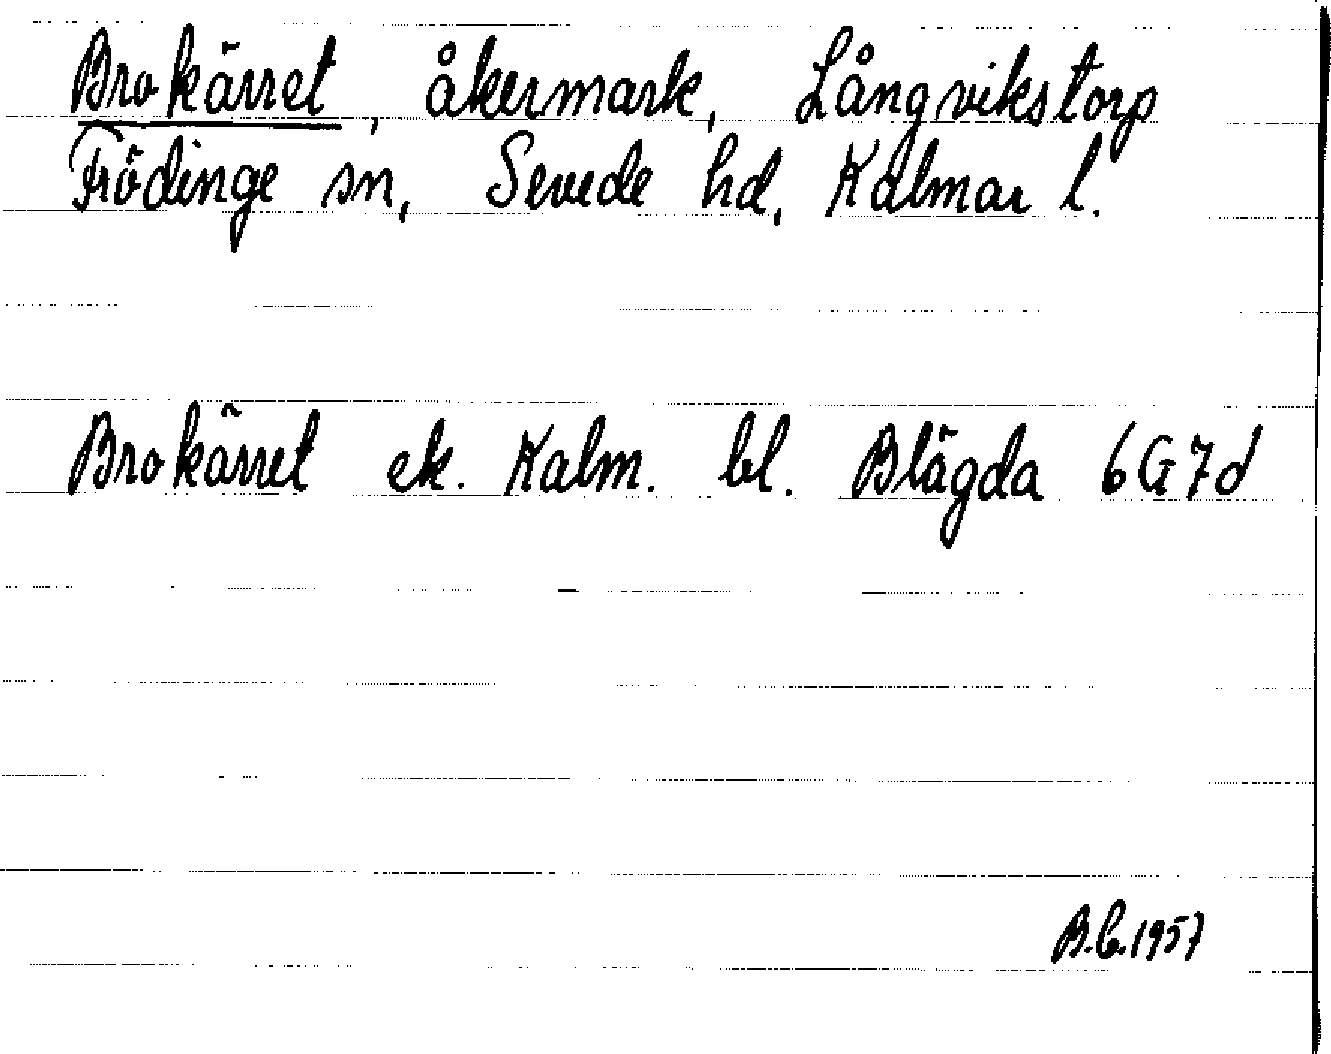 Brokärret, åkermark, Långvikstorp
Frödinge sn, Sevede hd, Kalmar l.
Brokärret ek. Kalm. bl. Blägda 6G7d
B.C. 1957